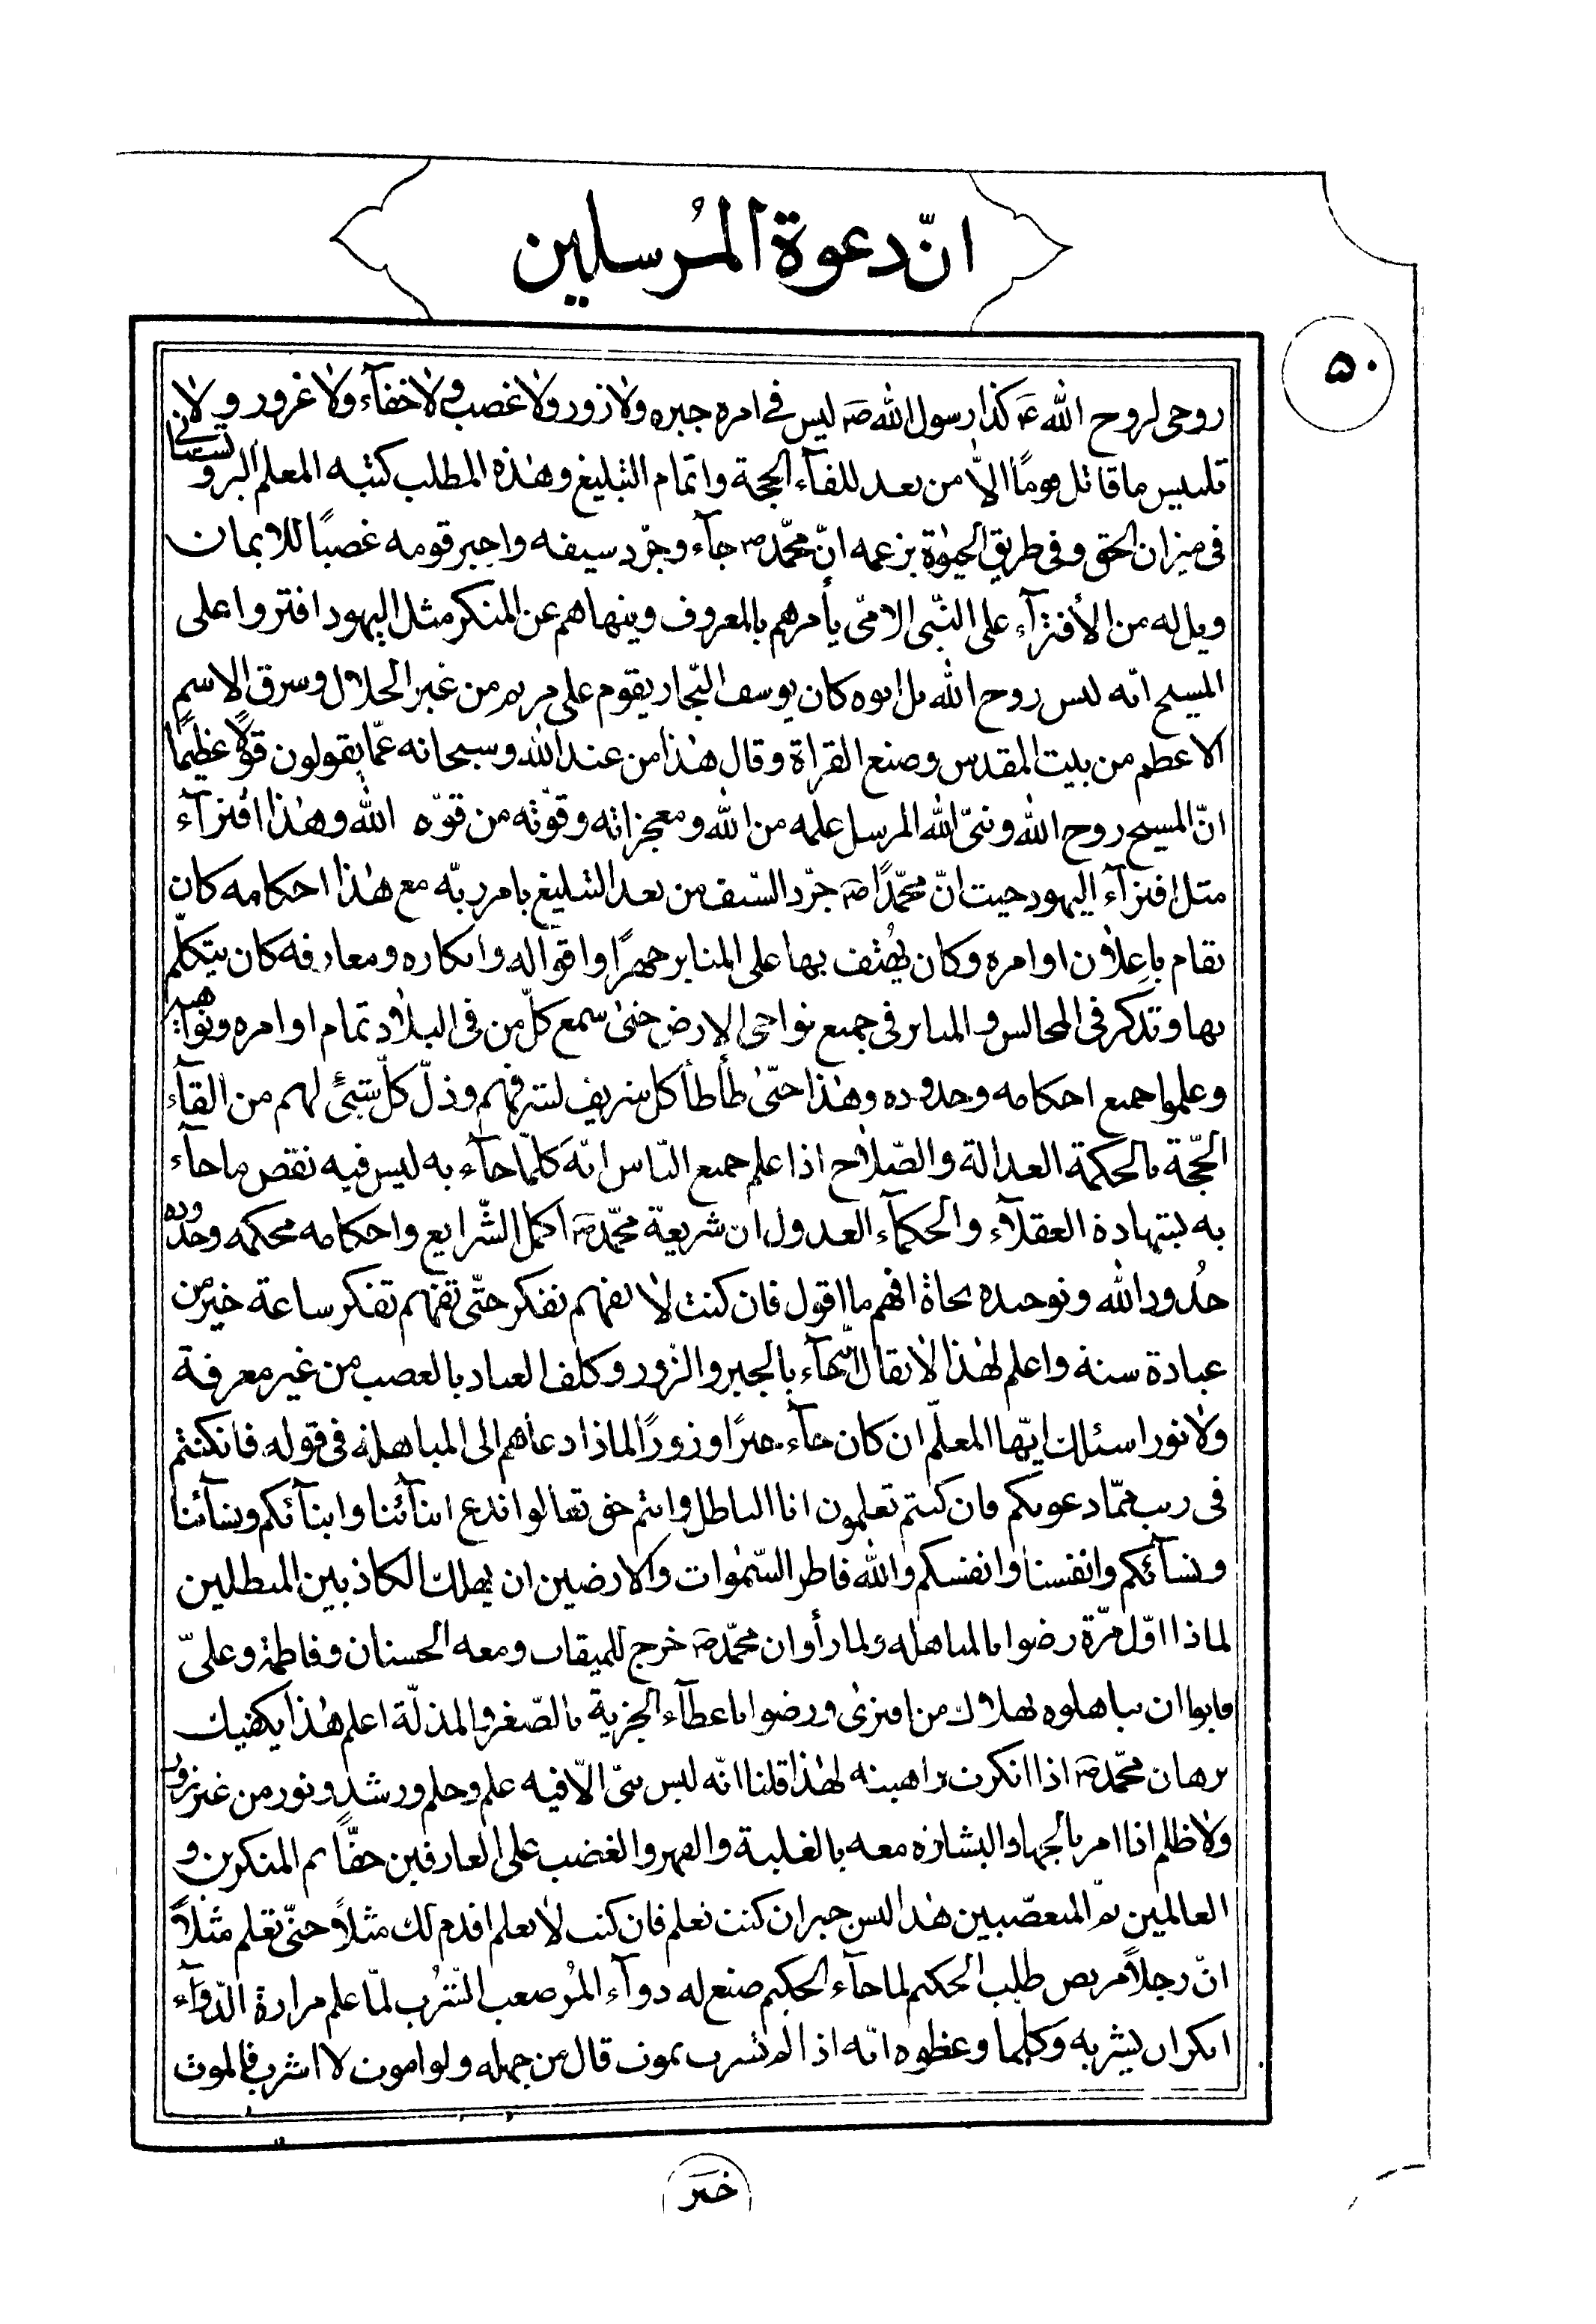 انّ دعوة المُرسلین
۵۰
روحی لروح الله ع کذا رسول الله ص لیس فی امره جبره ولا زور ولا غصب ولا خفآء ولا غرور ولا
تلبیس ما قاتل یومًا الّا من بعد للقآء الحجة واتمام التبلیغ وهٰذه المطلب کتبه المعلم البروتستانی
فی میزان الحق وفی طریق الحیٰوة بزعمه انّ محمّد ص جآء وجرّد سیفه واجبر قومه غصبًا للایمان
ویل له من الأفترآء علی النّبی الامّی یأمرهم بالمعروف وینهاهم عن المنکر مثل الیهود افتروا علی
المسیح انه لیس روح الله بل ابوه کان یوسف النّجار یقوم علی مریم من غیر الحلال وسرق الاسم
الاعظم من بیت المقدس وصنع القراة وقال هٰذا من عند الله وسبحانه عمّا یقولون قولًا عظیمًا
انّ المسیح روح الله ونبیّ الله المرسل علمه من الله ومعجزاته وقوّته من قوّه الله وهٰذا افترآء
مثل افترآء الیهود حیث انّ محمّدًا ص جرّد السّیف من بعد التبلیغ بامر ربّه مع هٰذا احکامه کان
یقام باِعلان اوامره وکان یُهتف بها علی المنابر جهرًا واقواله وانکاره ومعارفه کان یتکلّم
بها وتذکر فی المجالس والمنابر فی جمیع نواحی الارض حتیٰ سمع کلّ من فی البلاد تمام اوامره ونواهیه
وعلموا جمیع احکامه وحدوده وهٰذا حتّیٰ طأطأ کل شریف لشرفهم وذلّ کلّ شیئ لهم من القآء
الحجّة بالحکمة العدالة والصّلاح اذا علم جمیع النّاس انّه کلّما جآء به لیس فیه نقص ما جآء
به بشهادة العقلآء والحکمآء العدول ان شریعة محمّد ص اکمل الشّرایع واحکامه محکمه وحدوده
حُدود الله وتوحیده نجاة افهم ما اقول فان کنت لا تفهم تفکر حتّی تفهم تفکر ساعة خیر من
عبادة سنة واعلم لهٰذا لا یقال انّه جآء بالجبر والزّور وکلف العباد بالغصب من غیر معرفة
ولا نور اسئلك ایّها المعلّم ان کان جآء جبرًا وزورًا لماذا دعاهم الی المباهلة فی قوله فان کنتم
فی ریب ممّا دعوتکم فان کنتم تعلمون انا الباطل وانتم حق تعالوا ندع ابنآئنا وابنآئکم ونسآئنا
ونسآئکم وانفسنا وانفسکم والله فاطر السّمٰوات والارضین ان یهلك الکاذبین المبطلین
لماذا اوّل مرّة رضوا بالمباهله ولما رأوا ان محمّد ص خرج للمیقات ومعه الحسنان وفاطمة وعلیّ
فابوا ان یباهلوه لهلاك من افتریٰ ورضوا باعطآء الجزیة بالصّغر والمذلّة اعلم هٰذا یکفیك
برهان محمّد ص اذا انکرت براهینه لهٰذا قلنا انّه لیس شیّ الّا فیه علم وحلم ورشد ونور من غیر زور
ولا ظلم اذا امر بالجهاد البشازه معه بالغلبة والقهر والغضب علی العارفین حقًّا ثم المنکرین و
العالمین ثمّ المتعصّبین هٰذا لیس جبر ان کنت تعلم فان کنت لا تعلم اقدم لك مثلاً حتّی تعلم مثلاً
انّ رجلاً مریض طلب الحکیم لما جآء الحکیم صنع له دوآء المُر صعب الشُرب لمّا علم مرارة الدّوآء
انکر ان یشربه وکلما وعظوه انّه اذا لم تشرب تموت قال من جهله ولو اموت لا اشرب فالموت
خیر